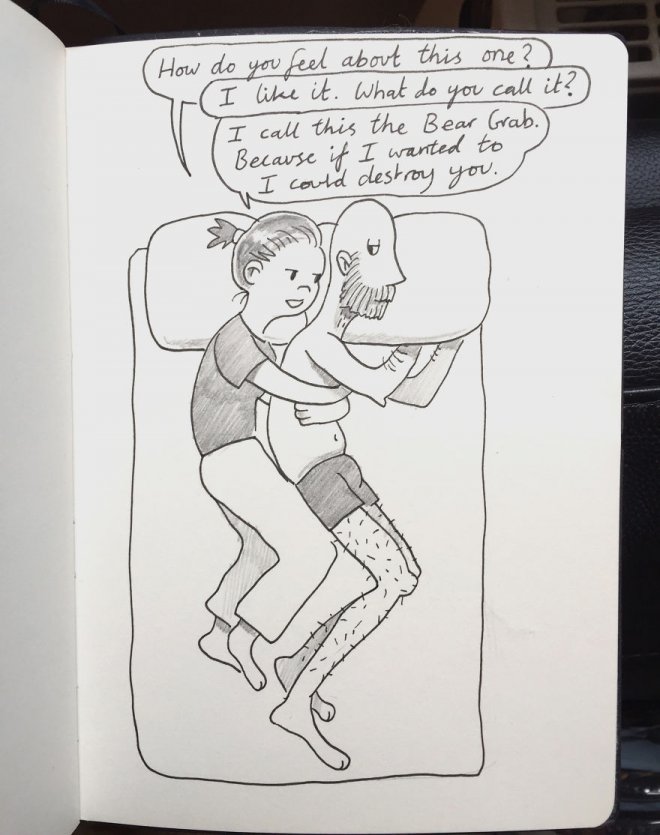 How do you feel about this one?
I like it. What do you call it?
I call this the Bear Grab.
Because if I wanted to
I could destroy you.